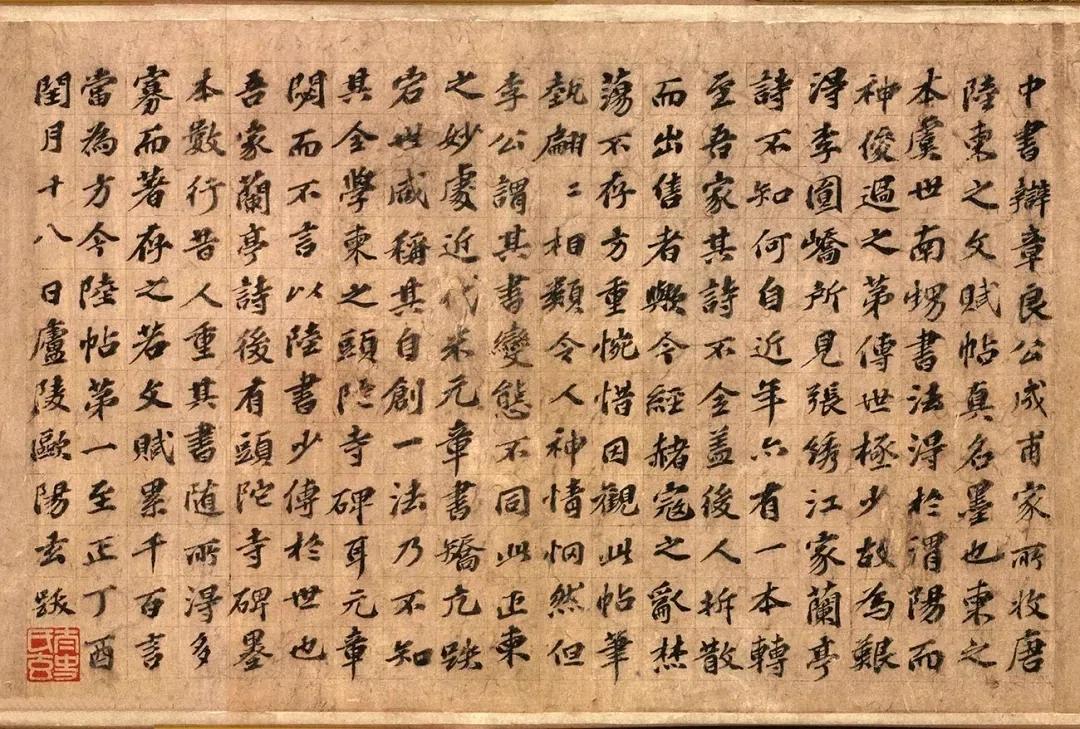 中書辯章良公成甫家所收唐
陸柬之文賦帖真名墨也柬之
本虞世南甥書法得於渭陽而
神俊過之第傳世極少故為艱
得李圖嶠所見張綉江家蘭亭
詩不知何自近年亦有一本轉
至吾家其詩不全蓋後人拆散
而出售者歟今經赭寇之亂焚
蕩不存方重惋惜因觀此帖筆
埶翩〻相類令人神情惘然但
李公謂其書變態不同此正柬
之妙處近代米元章書矯亢跌
宕世咸稱其自創一法乃不知
其全學柬之頭陀寺碑耳元章
閟而不言以陸書少傳於世也
吾家蘭亭詩後有頭陀寺碑墨
本數行昔人重其書随所得多
寡而著存之若文賦累千百言
當為方今陸帖第一至正丁酉
閏月十八日廬陵歐陽玄跋